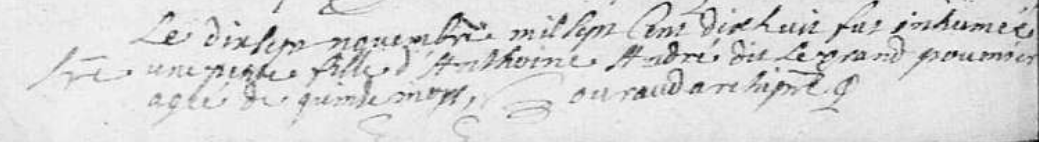 Le dixsept novembre mil sept cent dixhuit fut inhumée
une petite fille d'Anthoine André dit Le grand
agée de quinze moys, archiprê